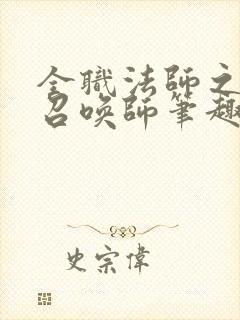 全職法師之
召喚師筆趣
史宗偉